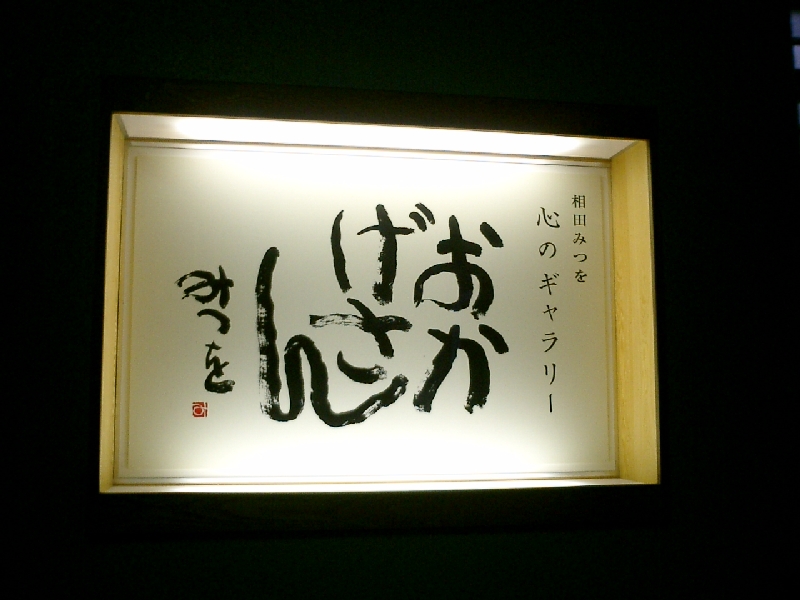 相田みつを
心のギャラリー
おか
げさ
ん
みつを